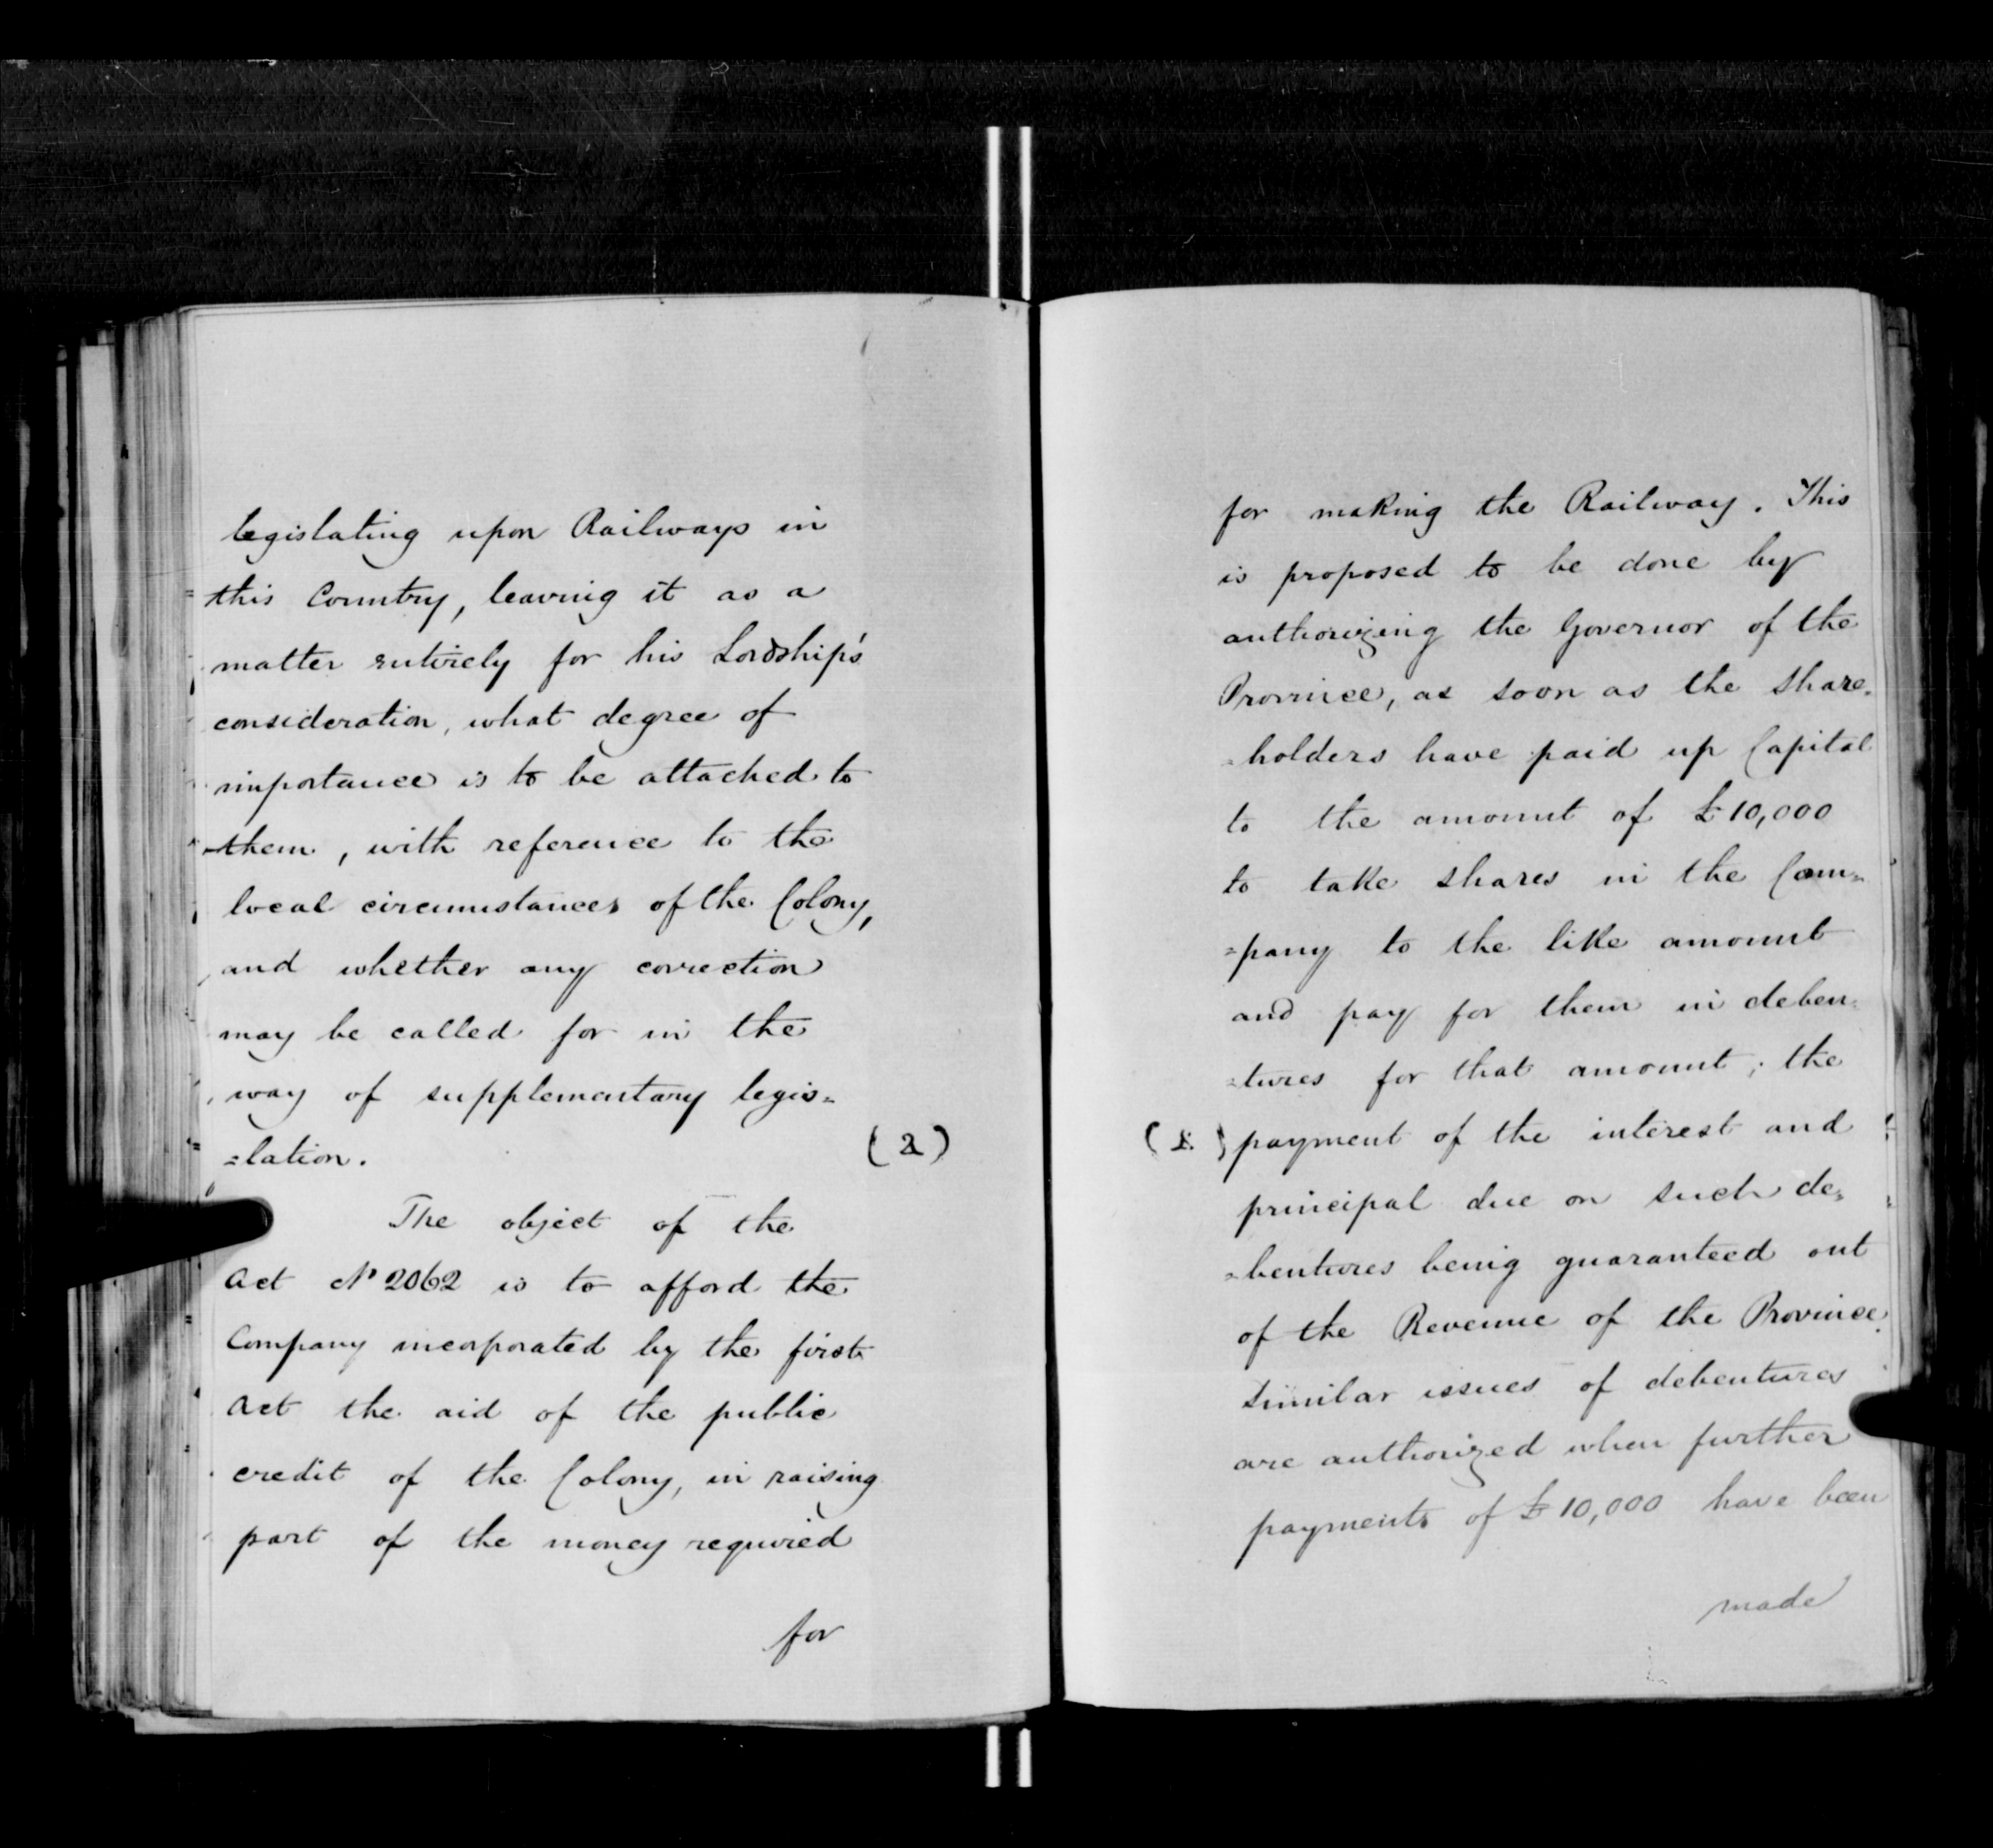 legislating upon Railways in
this Country, leaving it as a
matter entirely for his Lordship's
consideration, what degree of
importance is to be attached to
them, with reference to the
local circumstances of the Colony,
and whether any correction
may be called for in the
way of supplementary legis=
=lation. (2)
The object of the
Act No 2062 is to afford the
Company incorporated by the first
Act the aid of the public
credit of the Colony, in raising
part of the money required
for
for making the Railway. This
is proposed to be done by
authorizing the Governor of the
Province, as soon as the share=
=holders have paid up Capital
to the amount of £10,000
to take shares in the Com=
=pany to the like amount
and pay for them in deben=
=tures for that amount; the
payment of the interest and
principal due on such de=
=bentures being guaranteed out
of the Revenue of the Province.
Similar issues of debentures
are authorized when further
payments of £10,000 have been
made